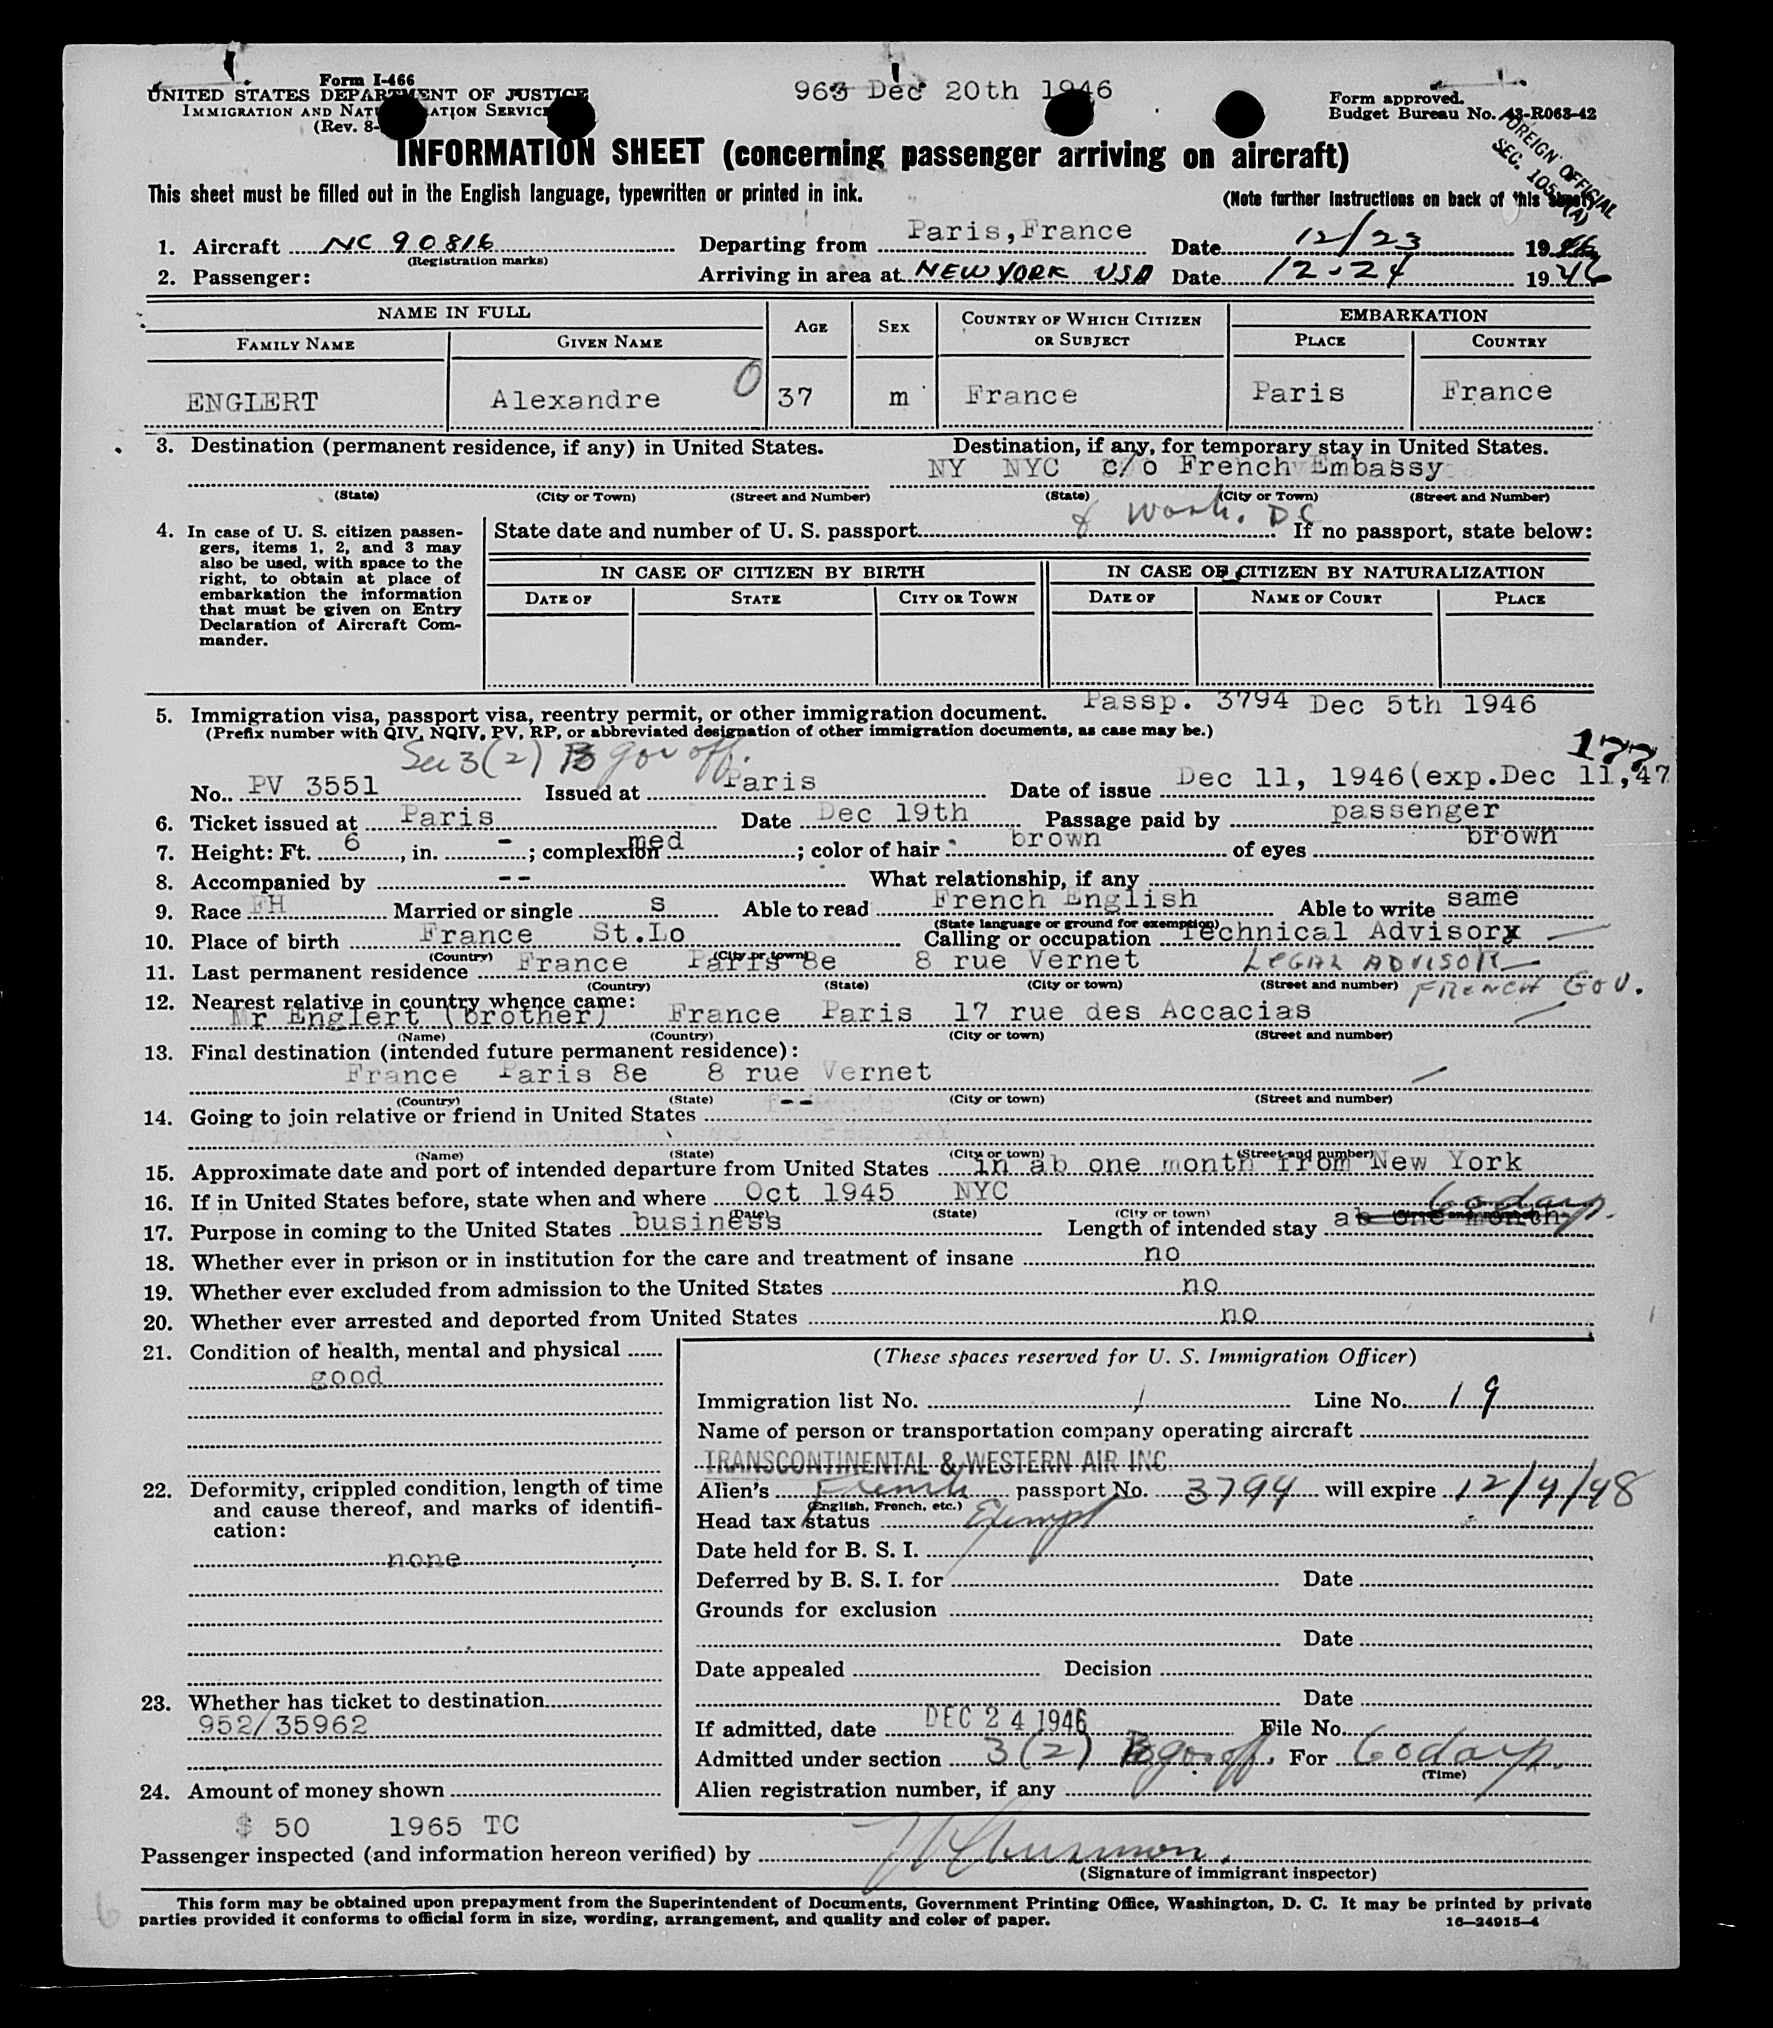 Form I-466
UNITED STATES DEPARTMENT OF JUSTICE
IMMIGRATION AND NATURALIZATION SERVICE
(Rev. 8-
963 Dec 20th 1946
Form approved.
Budget Bureau No. 43-R063-42
FOREIGN OFFICIAL
SEC. 105 (A)
INFORMATION SHEET (concerning passenger arriving on aircraft)
This sheet must be filled out in the English language, typewritten or printed in ink.
(Note further instructions on back of this sheet)
1. Aircraft NC 90816 Departing from Paris, France Date 12/23 1946
(Registration marks)
2. Passenger: Arriving in area at NEW YORK USA Date 12-24 1946
NAME IN FULL
FAMILY NAME GIVEN NAME AGE SEX COUNTRY OF WHICH CITIZEN OR SUBJECT EMBARKATION PLACE COUNTRY
ENGLERT Alexandre 0 37 m France Paris France
3. Destination (permanent residence, if any) in United States. Destination, if any, for temporary stay in United States.
NY NYC c/o French Embassy
(State) (City or Town) (Street and Number) (State) (City or Town) (Street and Number)
& Wash. DC
4. In case of U. S. citizen passen-
gers, items 1, 2, and 3 may
also be used, with space to the
right, to obtain at place of
embarkation the information
that must be given on Entry
Declaration of Aircraft Com-
mander.
State date and number of U. S. passport If no passport, state below:
IN CASE OF CITIZEN BY BIRTH IN CASE OF CITIZEN BY NATURALIZATION
DATE OF STATE CITY OR TOWN DATE OF NAME OF COURT PLACE
Passp. 3794 Dec 5th 1946
5. Immigration visa, passport visa, reentry permit, or other immigration document.
(Prefix number with QIV, NQIV, PV, RP, or abbreviated designation of other immigration documents, as case may be.)
Sec 3(2) B gov off. 177
No. PV 3551 Issued at Paris Date of issue Dec 11, 1946(exp.Dec 11,47
6. Ticket issued at Paris Date Dec 19th Passage paid by passenger
7. Height: Ft. 6, in. -; complexion med; color of hair brown of eyes brown
8. Accompanied by -- What relationship, if any
9. Race FH Married or single s Able to read French English Able to write same
(State language or ground for exemption)
10. Place of birth France St.Lo Calling or occupation Technical Advisory
(Country) (City or town)
11. Last permanent residence France Paris 8e 8 rue Vernet LEGAL ADVISOR
(Country) (State) (City or town) (Street and number) FRENCH GOV.
12. Nearest relative in country whence came:
Mr Englert (brother) France Paris 17 rue des Accacias
(Name) (Country) (City or town) (Street and number)
13. Final destination (intended future permanent residence):
France Paris 8e 8 rue Vernet
(Country) (State) (City or town) (Street and number)
14. Going to join relative or friend in United States --
(Name) (State) (City or town) (Street and number)
15. Approximate date and port of intended departure from United States in ab one month from New York
16. If in United States before, state when and where Oct 1945 NYC
(Date) (State) (City or town) (Street and number)
60 days.
17. Purpose in coming to the United States business Length of intended stay ab one month
18. Whether ever in prison or in institution for the care and treatment of insane no
19. Whether ever excluded from admission to the United States no
20. Whether ever arrested and deported from United States no
21. Condition of health, mental and physical
good
22. Deformity, crippled condition, length of time
and cause thereof, and marks of identifi-
cation:
none
23. Whether has ticket to destination
952/35962
24. Amount of money shown
$ 50 1965 TC
(These spaces reserved for U. S. Immigration Officer)
Immigration list No. 1 Line No. 19
Name of person or transportation company operating aircraft
TRANSCONTINENTAL & WESTERN AIR INC.
Alien's French passport No. 3794 will expire 12/4/48
(English, French, etc.)
Head tax status Exempt
Date held for B. S. I.
Deferred by B. S. I. for Date
Grounds for exclusion
Date
Date appealed Decision
Date
If admitted, date DEC 24 1946 File No.
Admitted under section 3(2) B gov off. For 60 days.
(Time)
Alien registration number, if any
Passenger inspected (and information hereon verified) by
(Signature of immigrant inspector)
This form may be obtained upon prepayment from the Superintendent of Documents, Government Printing Office, Washington, D. C. It may be printed by private
parties provided it conforms to official form in size, wording, arrangement, and quality and color of paper.
16—24915-4
6